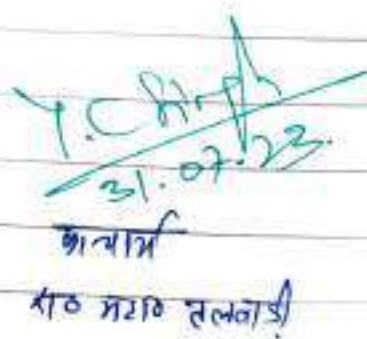 Y.C Singh
31.07.23.
प्राचार्य
रा० महा० तलवाडी